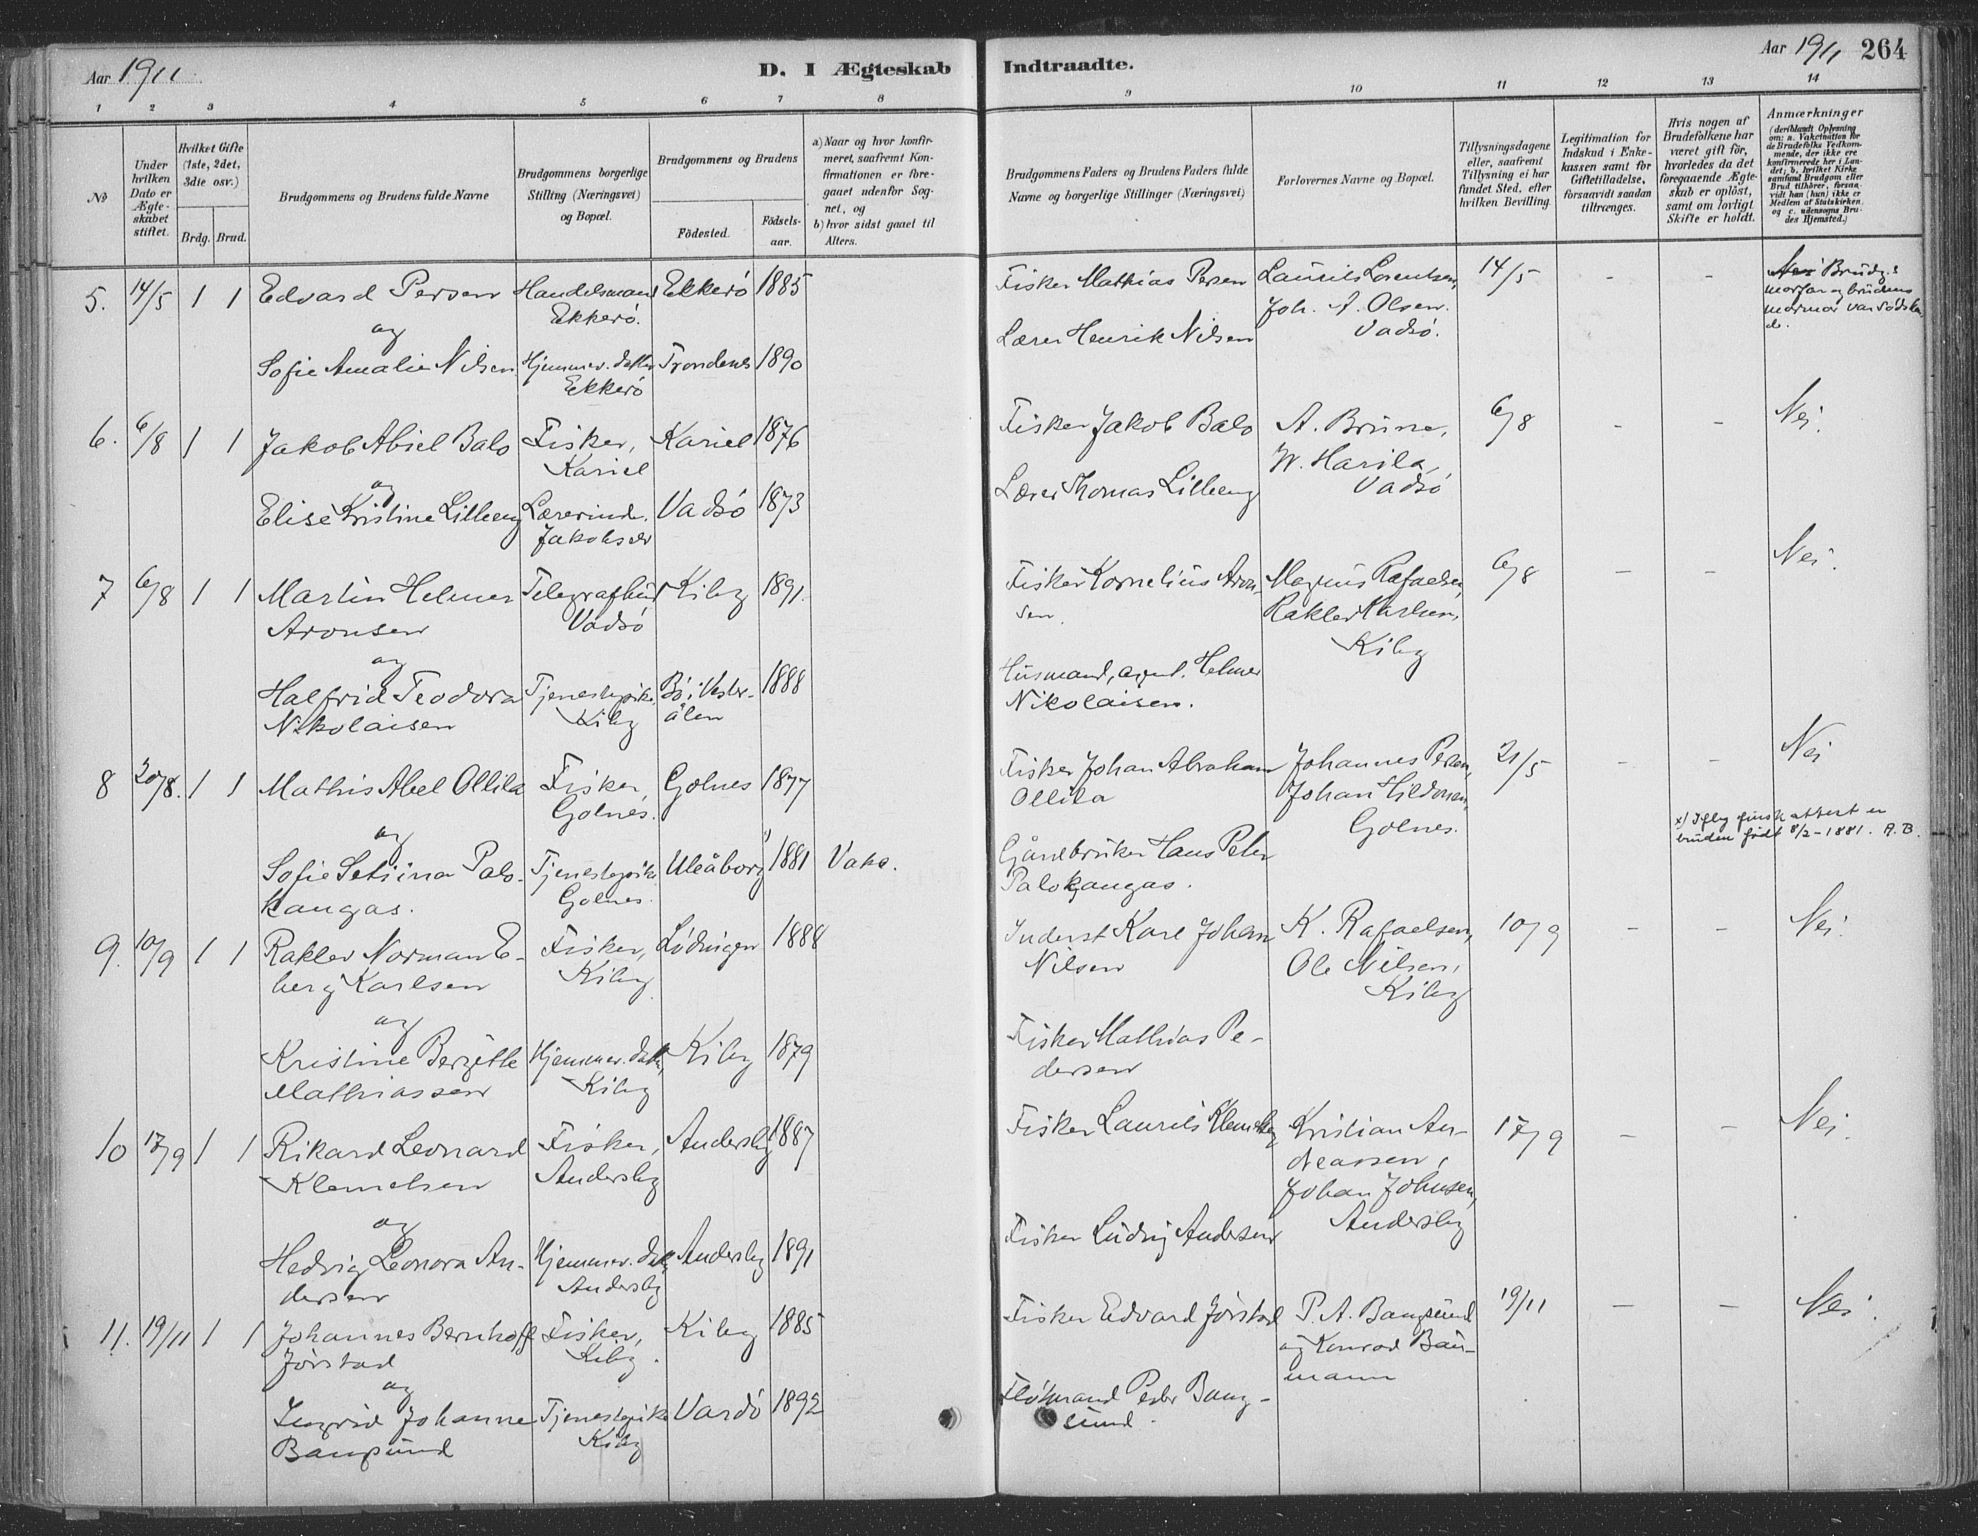 Aar 1911
D. I Ægteskab
Indtraadte.
Aar 1911
264
1 2 3 4 5 6 7 8
9 10 11 12 13 14
No
Under hvilken Dato er Ægteskabet stiftet.
Hvilket Gifte (1ste, 2det, 3die osv.)
Brdg. Brud.
Brudgommens og Brudens fulde Navne
Brudgommens borgerlige Stilling (Næringsvei) og Bopæl.
Brudgommens og Brudens
Födested.
Födsels-aar.
a) Naar og hvor konfirmeret, saafremt Konfirmationen er foregaaet udenfor Sognet, og
b) hvor sidst gaaet til Alters.
Brudgommens Faders og Brudens Faders fulde Navne og borgerlige Stillinger (Næringsvei)
Forlovernes Navne og Bopæl.
Tillysningsdagene eller, saafremt Tillysning ei har fundet Sted, efter hvilken Bevilling.
Legitimation for Indskud i Enkekassen samt for Giftetilladelse, forsaavidt saadan tiltrænges.
Hvis nogen af Brudefolkene har været gift för, hvorledes da det foregaaende Ægteskab er oplöst, samt om lovligt Skifte er holdt.
Anmærkninger
(deriblandt Oplysning om: a. Vakcination for de Brudefolks Vedkommende, der ikke ere konfirmerede her i Landet; b. hvilket Kirkesamfund Brudgom eller Brud tilhörer, forsaavidt han (hun) ikke er Medlem af Statskirken, og c. udensogns Brudes Hjemsted.)
5. 14/5 1 1 Edvard Persen Handelsmand Ekkerö 1885
Ekkerö.
og
Sofie Amalie Nilsen Hjemmev. datter Trondenes 1890
Ekkerö
Fisker Mathias Persen Laurits Lorentsen, 14/5 - - Brudg.s
Joh. A. Olsen. morfar og brudens
Lærer Henrik Nilsen Vadsö. mormor var södsken-
de.
6. 6/8 1 1 Jakob Abiel Balo Fisker, Kariel 1876
Kariel
og
Elise Kristine Lilleeng Lærerinde Vadsö 1873
Jakobselv
Fisker Jakob Balo A. Brune, 6/8 - - Nei.
W. Harila,
Lærer Thomas Lilleeng Vadsö
7 6/8 1 1 Martin Helmer Telegrafbud Kiby 1891.
Aronsen Vadsö
og
Halfrid Teodora Tjenestepike Bö i Vester- 1888
Nikolaisen Kiby ålen
Fisker Kornelius Aron- Magnus Rafaelsen, 6/8 - - Nei.
sen. Rakler Karlsen,
Kiby
Husmand, agent. Helmer
Nikolaisen.
8 20/8. 1 1 Mathis Abel Ollila Fisker, Golnes 1877
Golnes.
og
Sofie Setiina Palo- Tjenestepike Uleåborg 1881 Vake.
kangas. Golnes
Fisker Johan Abraham Johannes Persen, 21/5 - - Nei
Ollila Johan Hildonen,
Golnes.
x) Iflg finsk attest er
bruden født 8/2-1881. A.B.
Gårdbruker Hans Peter
Palokangas.
9. 10/9 1 1 Rakler Norman E- Fisker, Lödingen 1888
berg Karlsen Kiby
og
Kristine Bergitte Hjemmev. dat. Kiby 1879
Mathiassen Kiby
Inderst Karl Johan K. Rafaelsen, 10/9 - - Nei.
Nilsen Ole Nilsen,
Kiby
Fisker Mathias Pe-
dersen
10 17/9 1 1 Rikard Leonard Fisker, Andersby 1887
Klemetsen Andersby
og
Hedvig Leonora An- Hjemmev. dat. Andersby 1891
dersen Andersby
Fisker Laurits Klemetsen Kristian An- 17/9 - - Nei.
dreassen,
Johan Johnsen,
Fisker Ludvig Andersen Andersby
11. 19/11 1 1 Johannes Bernhoff Fisker, Kiby 1885
Jörstad Kiby.
og
Ingrid Johanne Tjenestepike Vardö 1892
Bangsund Kiby
Fisker Edvard Jörstad P. A. Bangsund 19/11 - - Nei.
og Konrad Bau-
mann
Flötmand Peder Bang-
sund.